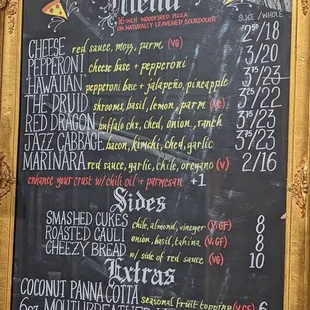 Menu
16 INCH WOODFIRED PIZZA
ON NATURALLY LEAVENED SOURDOUGH
SLICE / WHOLE
CHEESE red sauce, mozz, parm (VG) 2⁵⁰/18
PEPPERONI cheese base + pepperoni 3/20
HAWAIIAN pepperoni base + jalapeño, pineapple 3²⁵/23
THE DRUID shrooms, basil, lemon, parm 3²⁵/22
RED DRAGON buffalo chx, ched, onion, ranch 3⁷⁵/23
JAZZ CABBAGE bacon, kimchi, ched, garlic 3⁷⁵/23
MARINARA red sauce, garlic, chile, oregano (V) 2/16
enhance your crust w/ chili oil + parmesan +1
Sides
SMASHED CUKES chile, almond, vinegar (V, GF) 8
ROASTED CAULI onion, basil, tahina (V, GF) 8
CHEEZY BREAD w/ side of red sauce (VG) 10
Extras
COCONUT PANNA COTTA seasonal fruit topping (V, GF) 6